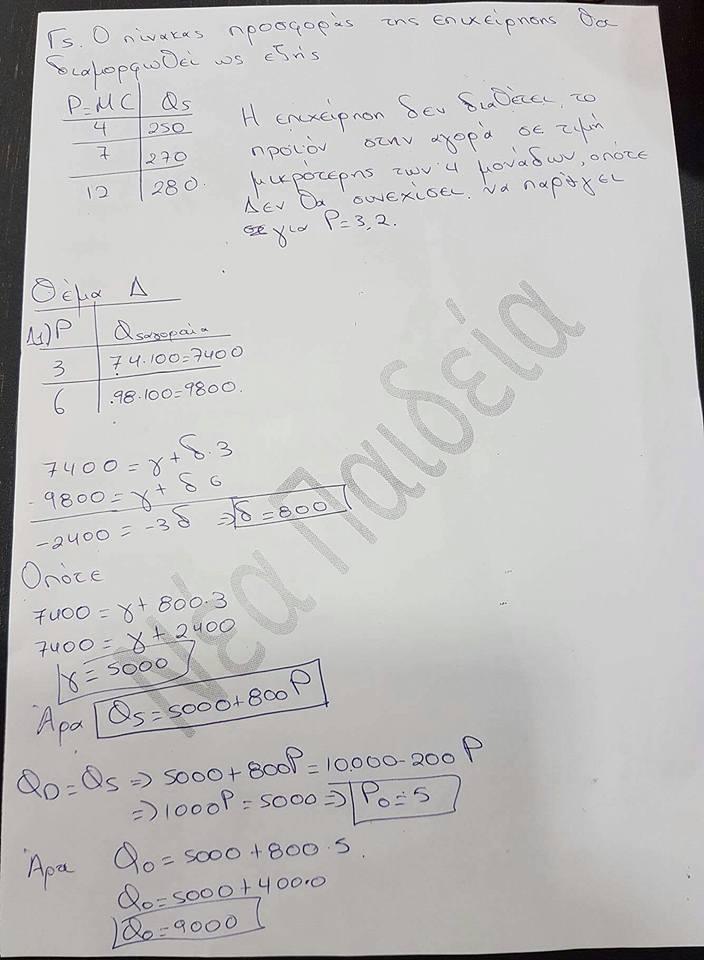 Γ5. Ο πίνακας προσφοράς της επιχείρησης θα
διαμορφωθεί ως εξής
P=MC Qs
4 250
7 270
12 280.
Η επιχείρηση δεν διαθέτει το
προϊόν στην αγορά σε τιμή
μικρότερης των 4 μονάδων, οπότε
Δεν θα συνεχίσει να παράγει
για P=3,2.
Θέμα Δ
Δ1) P Qsαγοραία
3 74·100=7400
6 98·100=9800.
7400 = γ + δ·3
-9800 = γ + δ6
-2400 = -3δ ⇒ δ=800
Οπότε
7400 = γ + 800·3
7400 = γ + 2400
γ = 5000
Άρα Qs = 5000+800P
QD = Qs ⇒ 5000+800P = 10.000-200P
⇒ 1000P = 5000 ⇒ P0 = 5
Άρα Q0 = 5000 + 800·5.
Q0 = 5000 + 4000
Q0 = 9000
Νέα Παιδεία